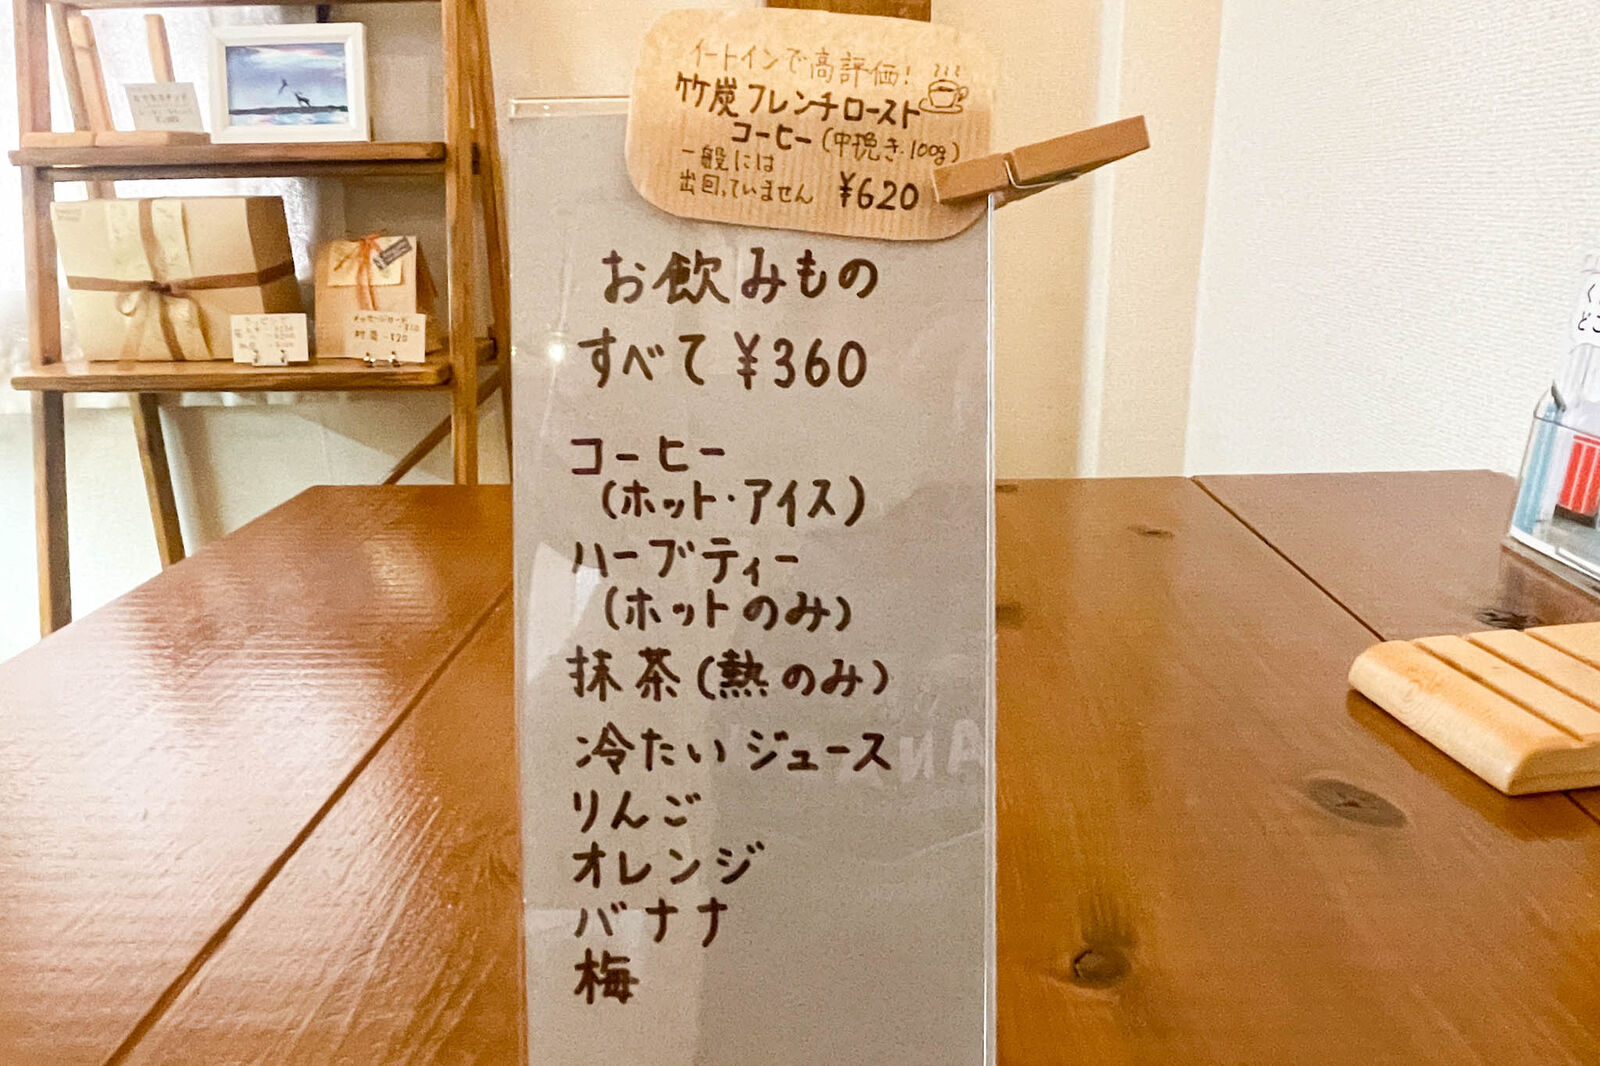 イートインで高評価!
竹炭フレンチロースト
コーヒー(中挽き・100g)
一般には
出回っていません ¥620
お飲みもの
すべて¥360
コーヒー
(ホット・アイス)
ハーブティー
(ホットのみ)
抹茶(熱のみ)
冷たいジュース
りんご
オレンジ
バナナ
梅
メッセージカード